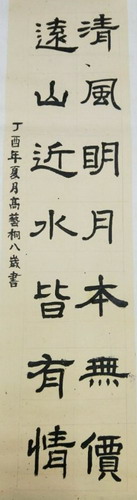 清風明月本無價
遠山近水皆有情
丁酉年夏月高藝桐八歲書